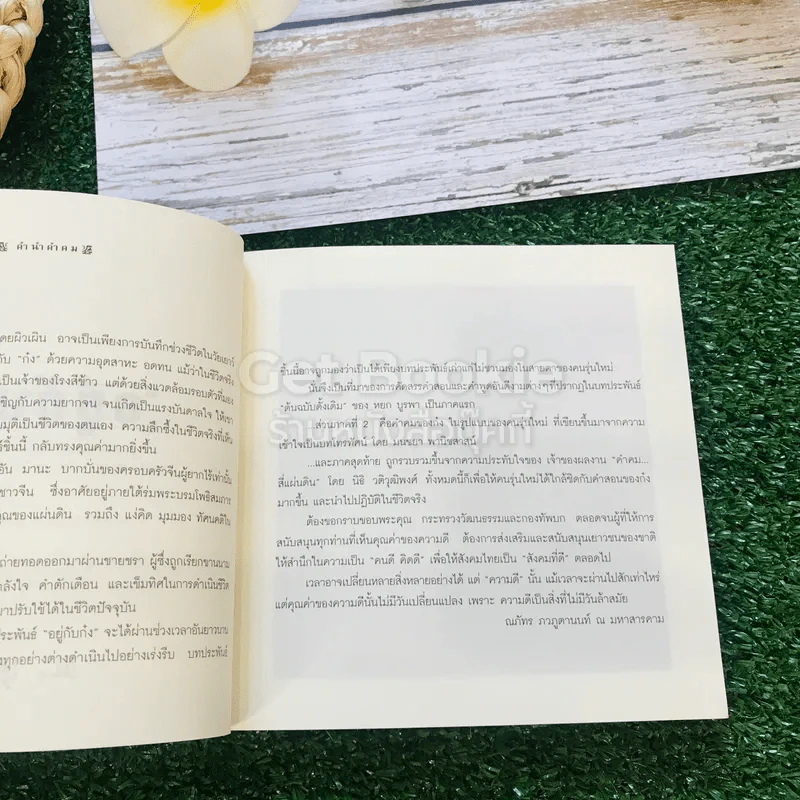 คำนำคำคม
ดยผิวเผิน อาจเป็นเพียงการบันทึกช่วงชีวิตในวัยเยาว์
กับ “ก๋ง” ด้วยความอุตสาหะ อดทน แม้ว่าในชีวิตจริง
เป็นเจ้าของโรงสีข้าว แต่ด้วยสิ่งแวดล้อมรอบตัวที่มอง
ชิญกับความยากจน จนเกิดเป็นแรงบันดาลใจ ให้เขา
มมุติเป็นชีวิตของตนเอง ความลึกซึ้งในชีวิตจริงที่เห็น
ชิ้นนี้ กลับทรงคุณค่ามากยิ่งขึ้น
อัน มานะ บากบั่นของครอบครัวจีนผู้ยากไร้เท่านั้น
ชาวจีน ซึ่งอาศัยอยู่ภายใต้ร่มพระบรมโพธิสมภาร
คุณของแผ่นดิน รวมถึง แง่คิด มุมมอง ทัศนคติใน
ถ่ายทอดออกมาผ่านชายชรา ผู้ซึ่งถูกเรียกขานนาม
ำลังใจ คำตักเตือน และเข็มทิศในการดำเนินชีวิต
มาปรับใช้ได้ในชีวิตปัจจุบัน
ประพันธ์ “อยู่กับก๋ง” จะได้ผ่านช่วงเวลาอันยาวนาน
งทุกอย่างต่างดำเนินไปอย่างเร่งรีบ บทประพันธ์
ชิ้นนี้อาจถูกมองว่าเป็นได้เพียงบทประพันธ์เก่าแก่ไม่ชวนมองในสายตาของคนรุ่นใหม่
นั่นจึงเป็นที่มาของการคัดสรรคำสอนและคำพูดอันดีงามต่างๆที่ปรากฏในบทประพันธ์
“ต้นฉบับดั้งเดิม” ของ หยก บูรพา เป็นภาคแรก
...ส่วนภาคที่ ๒ คือคำคมของก๋ง ในรูปแบบของคนรุ่นใหม่ ที่เขียนขึ้นมาจากความ
เข้าใจเป็นบทโทรทัศน์ โดย มนรยา พานิชสาสน์
...และภาคสุดท้าย ถูกรวบรวมขึ้นจากความประทับใจของ เจ้าของผลงาน “คำคม...
สี่แผ่นดิน” โดย นิธิ วติวุฒิพงศ์ ทั้งหมดนี้ก็เพื่อให้คนรุ่นใหม่ได้ใกล้ชิดกับคำสอนของก๋ง
มากขึ้น และนำไปปฏิบัติในชีวิตจริง
ต้องขอกราบขอบพระคุณ กระทรวงวัฒนธรรมและกองทัพบก ตลอดจนผู้ที่ให้การ
สนับสนุนทุกท่านที่เห็นคุณค่าของความดี ต้องการส่งเสริมและสนับสนุนเยาวชนของชาติ
ให้สำนึกในความเป็น “คนดี คิดดี” เพื่อให้สังคมไทยเป็น “สังคมที่ดี” ตลอดไป
เวลาอาจเปลี่ยนหลายสิ่งหลายอย่างได้ แต่ “ความดี” นั้น แม้เวลาจะผ่านไปสักเท่าไหร่
แต่คุณค่าของความดีนั้นไม่มีวันเปลี่ยนแปลง เพราะ ความดีเป็นสิ่งที่ไม่มีวันล้าสมัย
ณภัทร ภวภูตานนท์ ณ มหาสารคาม
Get Bookie